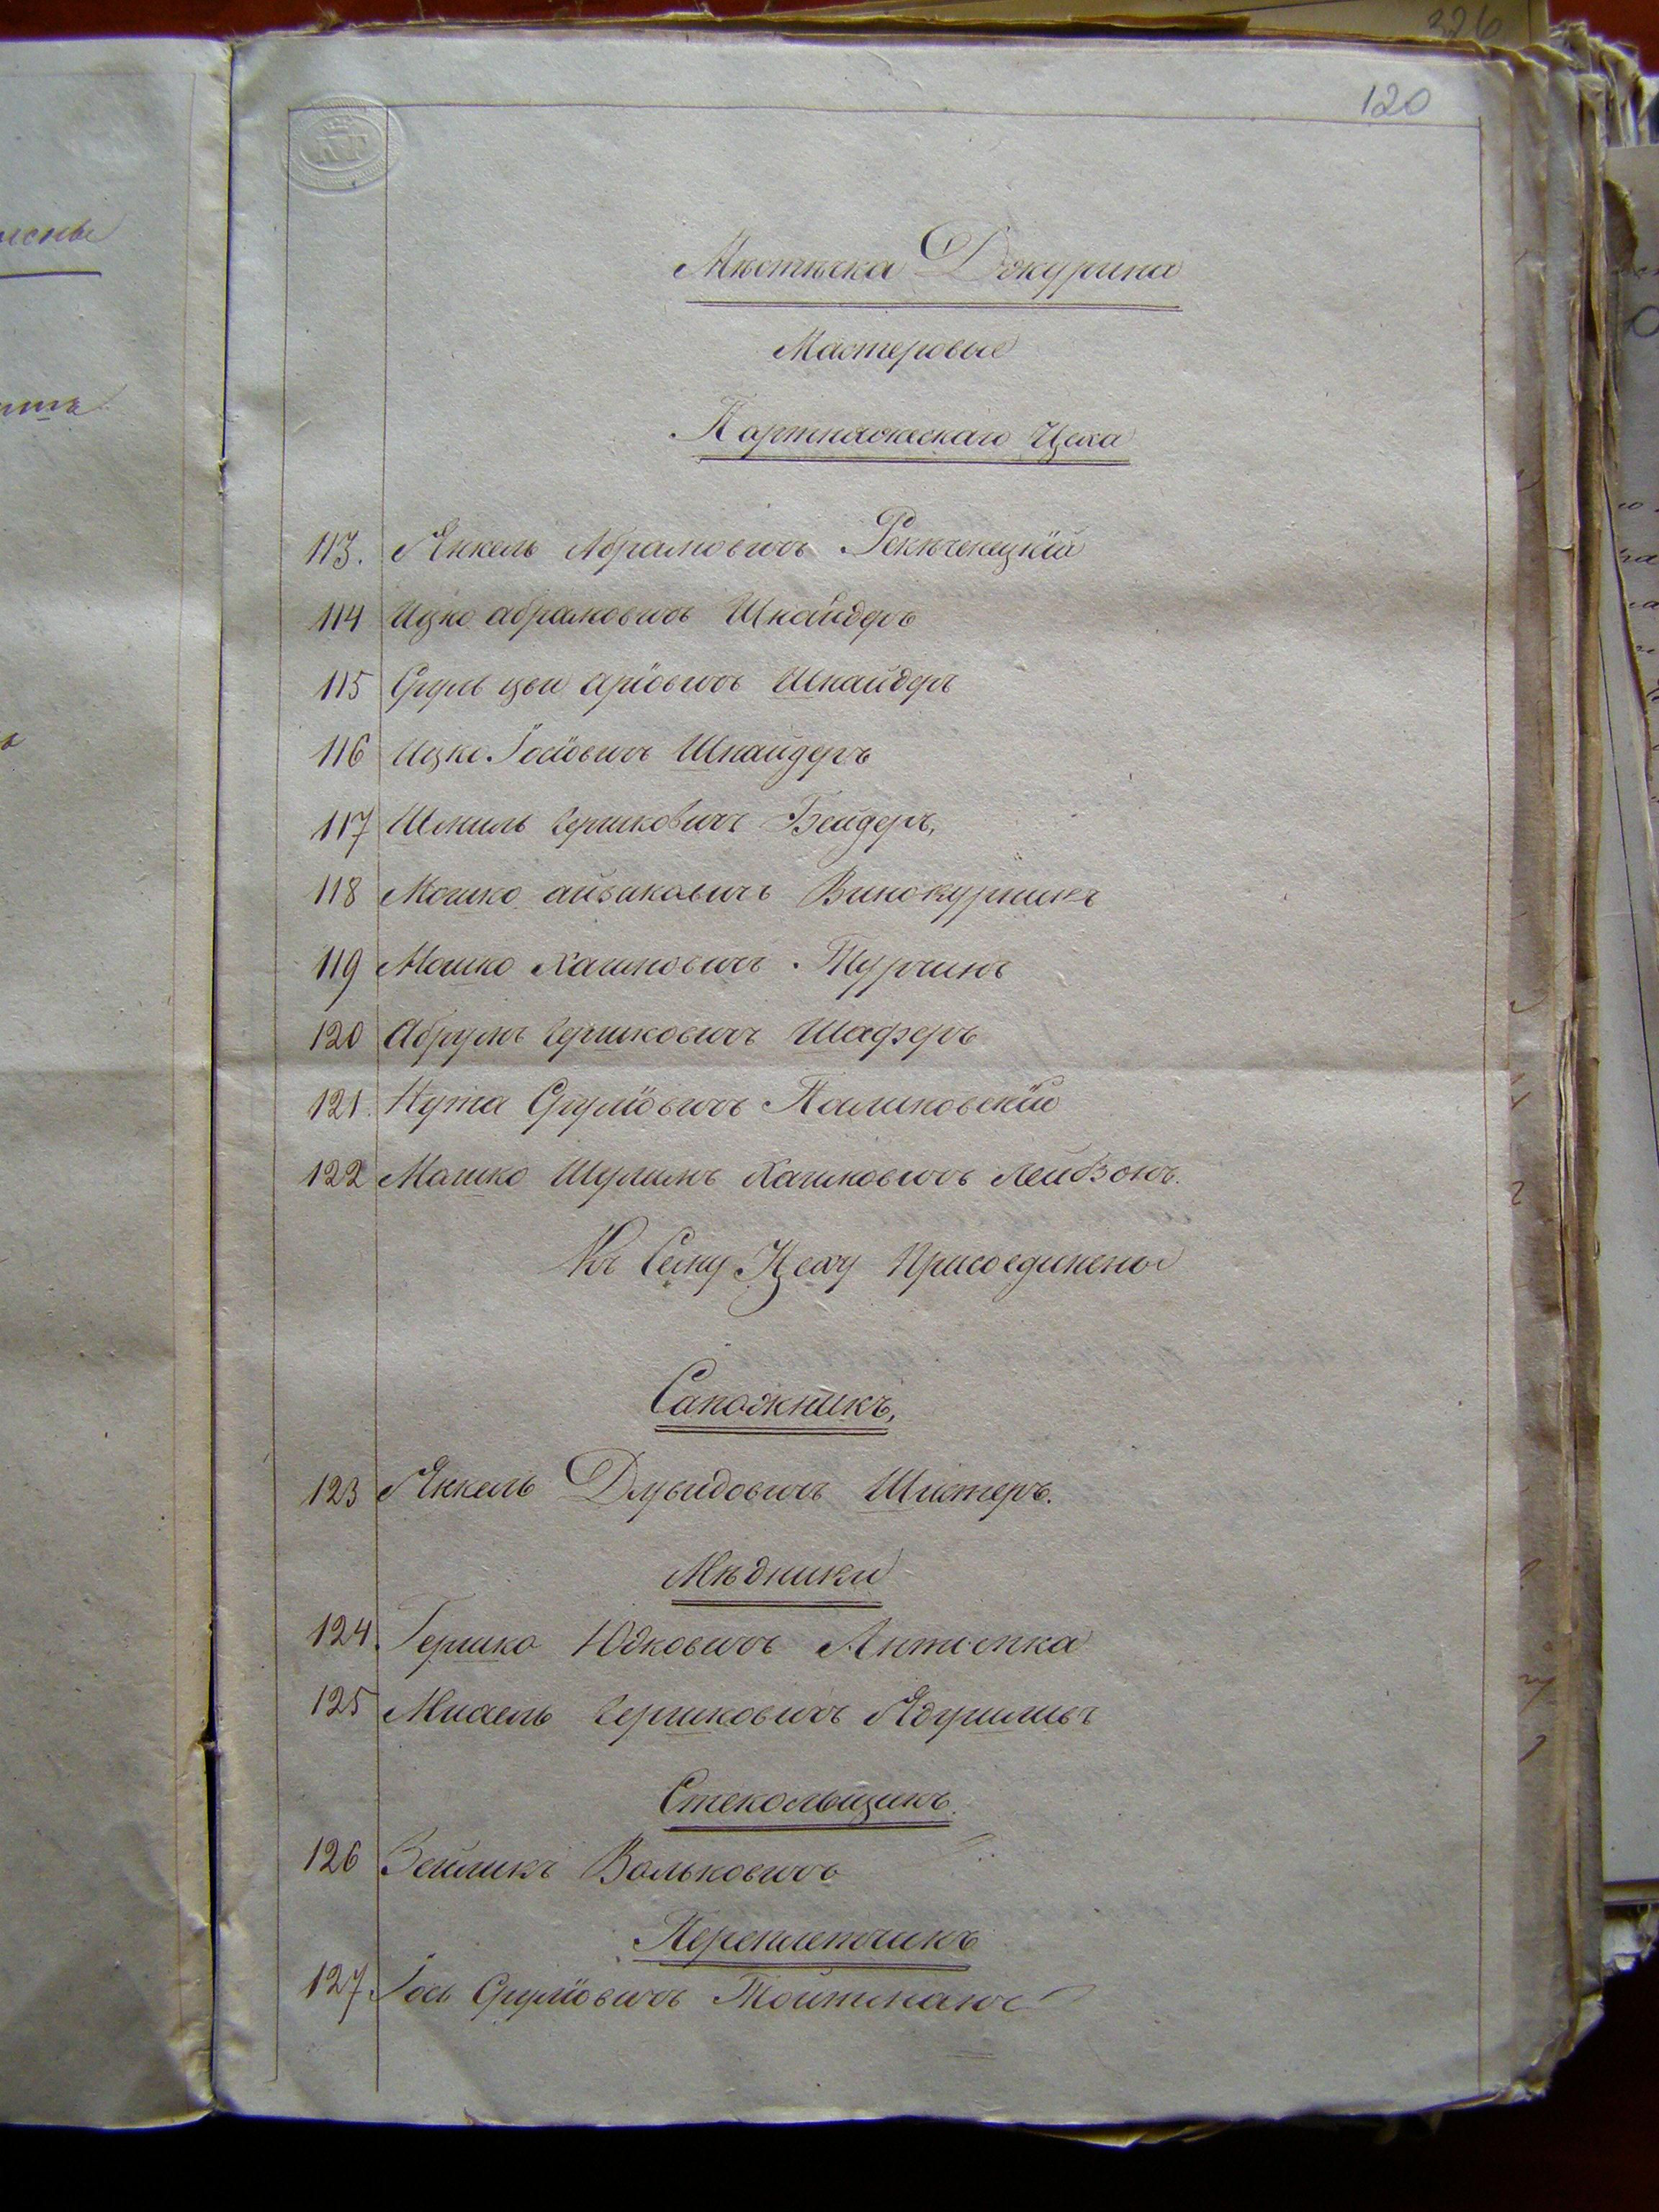 326
120
Мѣстѣчка Дзкурина
Мастеровые
Партняжескаго Цеха
113. Янкель Абрамовичъ
114 Ицко абрамовичъ Шнайдеръ
115 Сруль цви аріовичъ Шнайдеръ
116 Ицко Іосіовичъ Шнайдеръ
117 Шмиль гершковичъ Бейдеръ,
118 Мошко айзиковичъ Винокурникъ
119 Мошко Хаимовичъ Турчинъ
120 Абрумъ гершковичъ Шаферъ
121. Нута Сруліовичъ
122 Мошко Шулимъ Хаимовичъ Лейвзонъ.
Къ Сему Цеху Присоединены
Сапожникъ,
123 Янкель Дувидовичъ Шистеръ.
Мѣдники
124. Гершко Юдковичъ Антипка
125 Михель гершковичъ
Стекольщикъ.
126 Зейликъ Вольковичъ
Переплетчикъ
127. Іось Сруліовичъ Тойтманъ